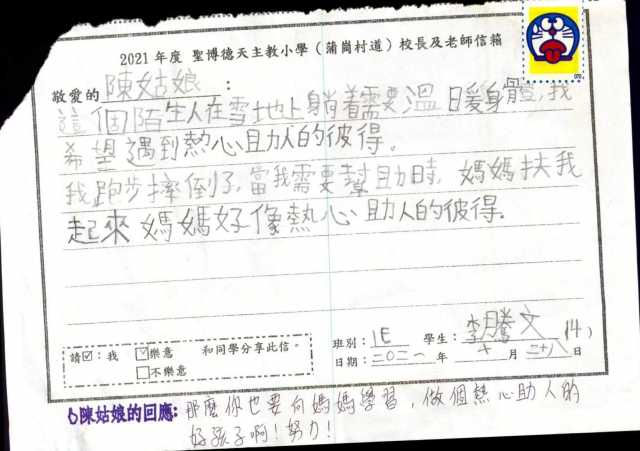 2021 年度 聖博德天主教小學（蒲崗村道）校長及老師信箱
敬愛的 陳姑娘 ：
這個陌生人在雪地上躺着需要溫暖身體,我
希望遇到熱心助人的彼得。
我跑步摔倒了,當我需要幫助時,媽媽扶我
起來媽媽好像熱心助人的彼得。
班別：1E 學生：李騰文(14)
請☑：我 ☑樂意 和同學分享此信。
□不樂意
日期：二〇二一 年 十 月 二十八 日
陳姑娘的回應: 那麼你也要向媽媽學習，做個熱心助人的
好孩子啊！努力！